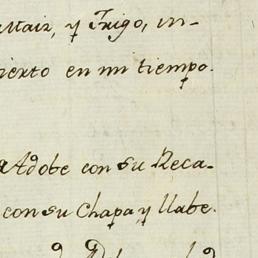 Maiz, y Trigo, in-
ierto en mi tiempo.
Adobe con su Reca-
con su Chapa y llabe.